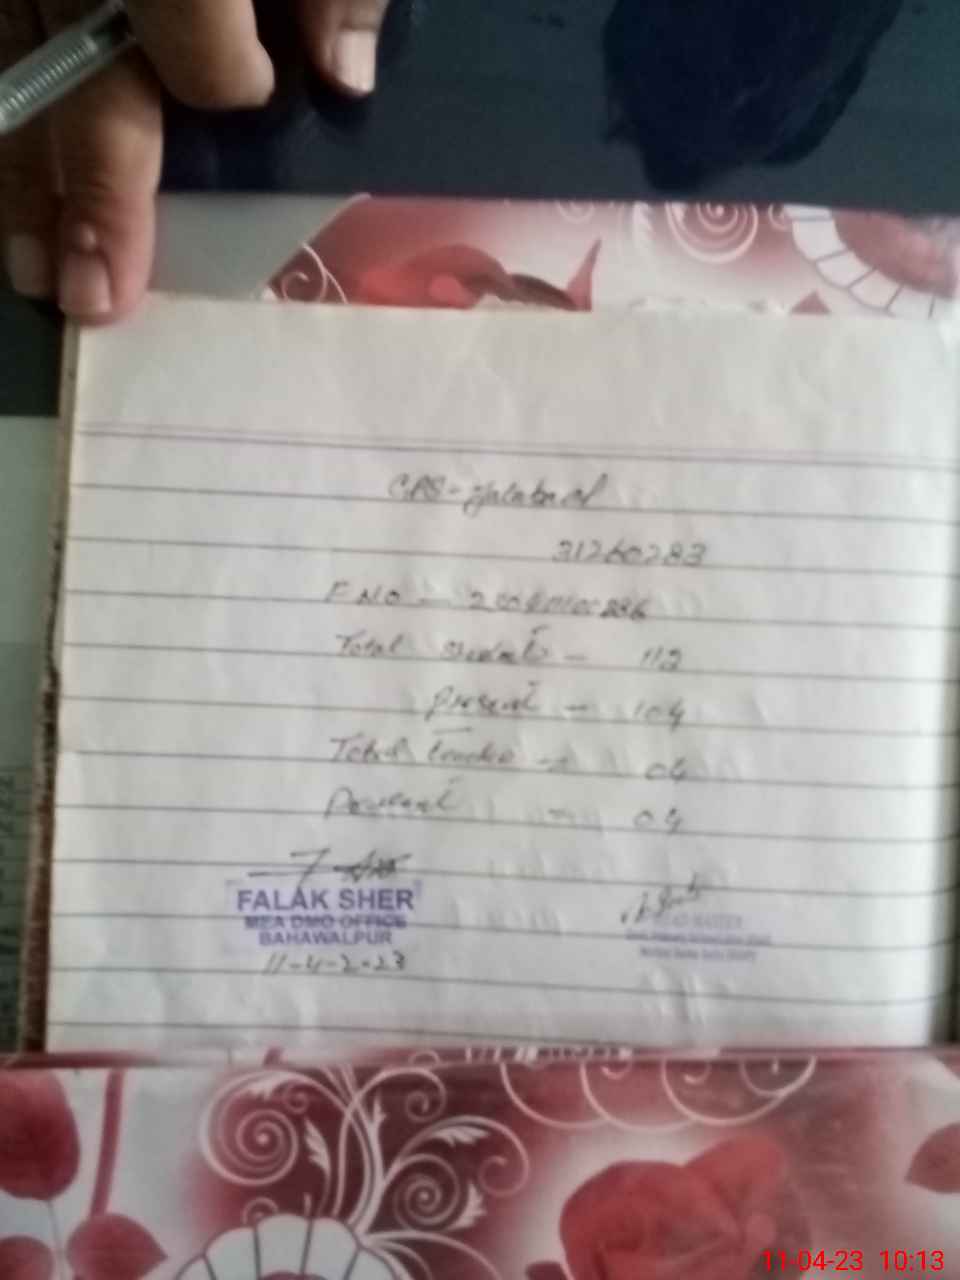 GPS-Jalabad
31260283
F NO -
Total Students - 112
Present - 104
Total teacher - 04
Present - 04
FALAK SHER
MEA DMO OFFICE
BAHAWALPUR
11-4-2023
HEAD MASTER
11-04-23 10:13